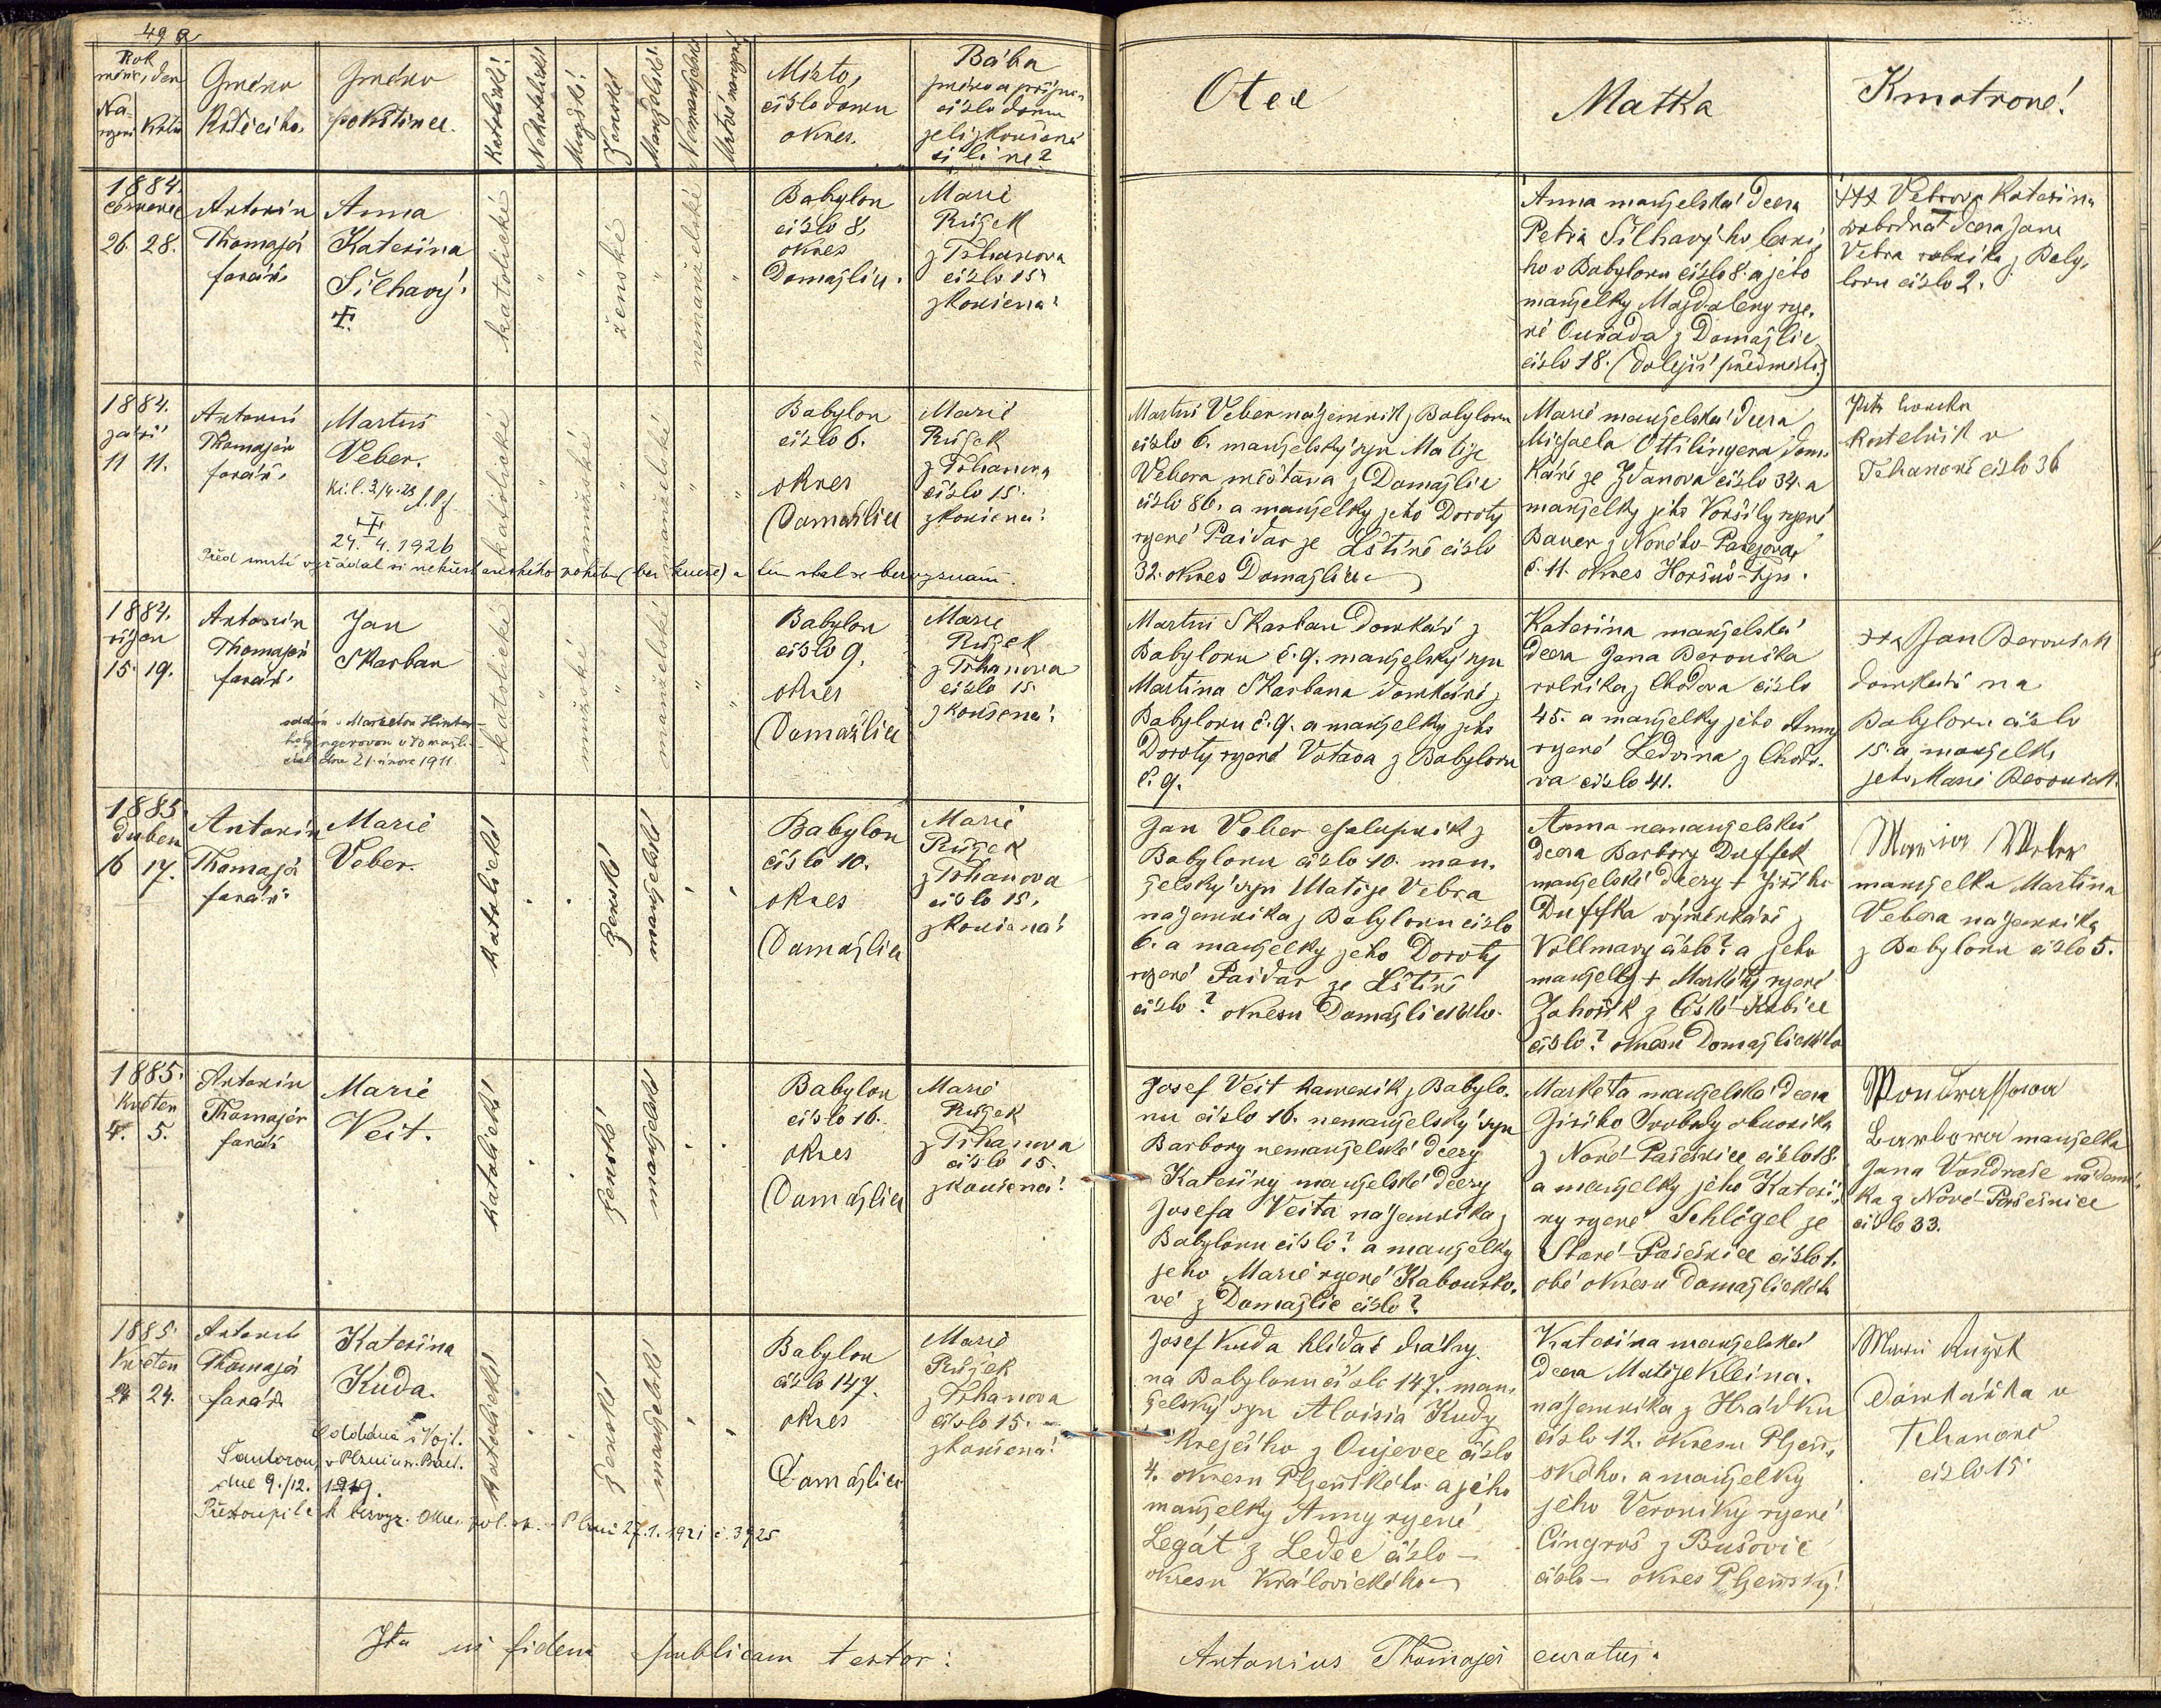 49
Rok
měsíc, den
Na-
rození
Křtu
Gméno
Křtícího
Gméno
pokřtěnce.
Katolické!
Nekatolické
Mužské!
Ženské
Manželské!
Nemanželské
Mrtvě narozené!
Místo,
číslo domu
okres.
Bába
jméno a příjme-
číslo domu
je li zkoušená
či li ne?
Otec
Matka
Kmotrové!
1884.
červenec
26. 28.
Antonín
Thomayer
farář.
Anna
Kateřina
Šilhavý!
katolické
ženské
nemanželské
Babylon
číslo 8,
okres
Domažlice.
Marie
Růžek
z Trhanova
číslo 15
zkoušená!
Anna manželská dcera
Petra Šilhavýho
ho v Babylonu číslo 8. a jeho
manželky Magdaleny roze-
né Ouřada z Domažlic
číslo 18. (dolejší předměstí.)
+++ Vebrova Kateřina
svobodná dcera Jana
Vebra rolníka z Baby-
lonu číslo 2.
1884.
září
11 11.
Antonín
Thomayer
farář.
Martin
Veber.
24. 4. 1926
Před smrtí vyžádal si nekřesťanského pohřbu (bez kněze) a tím stal se bez vyznání.
katolické
mužské
manželské
Babylon
číslo 6.
okres
Domažlice
Marie
Růžek
z Trhanova
číslo 15.
zkoušená!
Martin Veber nájemník z Babylonu
číslo 6. manželský syn Matěje
Vebera měšťana z Domažlic
číslo 86. a manželky jeho Doroty
rozené Paidar ze Lštině číslo
32. okres Domažlice
Marie manželská dcera
Michaela Ottilingera dom-
káře ze Ždanova číslo 34. a
manželky jeho Voršily rozené
Bauer z Nového-Pařezova
č. 11. okres Horšův-Týn.
Petr
Kostelník v
Trhanově číslo 36
1884.
říjen
15. 19.
Antonín
Thomayer
farář.
Jan
Skarban
oddán s Marketou Hinter-
holzingerovou v Domažli-
cích dne 21. února 1911.
katolické
mužské
manželské
Babylon
číslo 9.
okres
Domažlice
Marie
Růžek
z Trhanova
číslo 15
zkoušená!
Martin Skarban domkář z
Babylonu č. 9. manželský syn
Martina Skarbana domkáře z
Babylonu č. 9. a manželky jeho
Doroty rozené Votava z Babylonu
č. 9.
Kateřina manželská
dcera Jana Berouška
rolníka z Chodova číslo
45. a manželky jeho Anny
rozené Ledvina z Chodo-
va číslo 41.
Jan Berousek
domkář na
Babylonu číslo
15. a manželka
jeho Marie Berousek.
1885.
Duben
16 17.
Antonín
Thomayer
farář
Marie
Veber.
katolické
ženské
manželské
Babylon
číslo 10.
okres
Domažlice
Marie
Růžek
z Trhanova
číslo 15.
zkoušená!
Jan Veber chalupník z
Babylonu číslo 10. man-
želský syn Matěje Vebra
nájemníka z Babylonu číslo
6. a manželky jeho Doroty
rozené Paidar ze Lštině
číslo? okresu Domažlického.
Anna nemanželská
dcera Barbory Duffek
manželské dcery + Jiřího
Duffka výměnkáře z
Vollmavy číslo? a jeho
manželky + Markéty rozené
Zahořík z České-Kubice
číslo? okresu Domažlického
Maria Weber
manželka Martina
Vebera nájemníka
z Babylonu číslo 5.
1885.
Květen
4. 5.
Antonín
Thomayer
farář
Marie
Veit.
katolické
ženské
manželské
Babylon
číslo 16.
okres
Domažlice
Marie
Růžek
z Trhanova
číslo 15.
zkoušená!
Josef Veit kameník z Babylo-
nu číslo 16. nemanželský syn
Barbory nemanželské dcery
Kateřiny manželské dcery
Josefa Veita nájemníka z
Babylonu číslo? a manželky
jeho Marie rozené Kabourko-
vé z Domažlic číslo?
Markéta manželská dcera
Jiřího Svobody obuvníka
z Nové-Pasečnice číslo 18.
a manželky jeho Kateři-
ny rozené Schlögel ze
Staré-Pasečnice číslo 1.
obě okresu Domažlického
Wondrassowa
Barbora manželka
Jana Vondraše nádení-
ka z Nové-Pasečnice
číslo 33.
1885.
Květen
24 24.
Antonín
Thomayer
farář
Kateřina
Kuda.
Oddána s Vojt.
Šantorou v Plzni u sv. Bart.
dne 9./12. 1919.
Přestoupila k bezvyz. Okr. pol. sp. Plzni 27. 1. 1921 č. 3925
katolické
ženské
manželské
Babylon
číslo 147.
okres
Domažlice
Marie
Růžek
z Trhanova
číslo 15.
zkoušená!
Josef Kuda hlídač dráhy
na Babylonu číslo 147. man-
želský syn Aloisia Kudy
krejčího z Oujezce číslo
4. okresu Plzeňského a jeho
manželky Anny rozené
Legát z Ledec číslo —
okresu Královického
Kateřina manželská
dcera Matěje Kleina
nájemníka z Hrádku
číslo 12. okresu Plzeň-
ského a manželky
jeho Veroniky rozené
Cingroš z Bušovic
číslo — okres Plzeňský!
Marie Ružek
Domkářka v
Trhanově
číslo 15
Ita in fidem publicam testor:
Antonius Thomayer curatus.